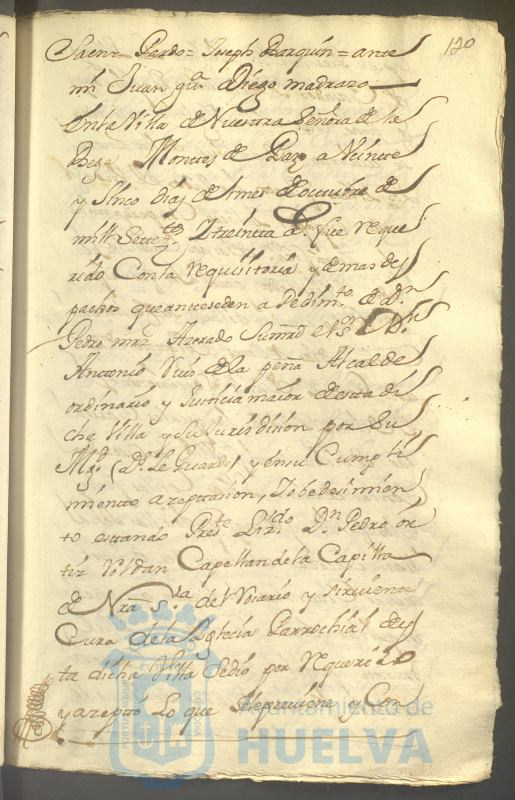 120
Saenz Pardo = Joseph Barquin = ante
mi Juan gª Diego madrazo
En la Villa de Nuestra Señora de la
Bega Montes de Paz a Veinte
y sinco dias del mes de octubre de
mill Setesᵗᵒˢ y treinta aˢ fue reque
rido Con la requisitoria y demas des
pachos que anteseden a Pedimᵗᵒ de Dⁿ
Pedro mrz Azerado Sumrd el Sʳ Dⁿ
Antonio de la peña Alcalde
ordinario y Justicia maior de esta di
cha Villa y su Jurisdision por Su
Magᵈ (Dˢ le Guarde) y en su Cumpli
miento azeptasion, y obedesimien
to estando Presᵗᵉ Lizᵈᵒ Dⁿ Pedro or
tiz Roldan Capellan de la Capilla
de Nrª Sʳª del Rosario y sirviente
Cura de la Iglecia Parrochial des
ta dicha Villa Se dio por requerido
y azepto Lo que Se previene y Con
Ayuntamiento de
HUELVA